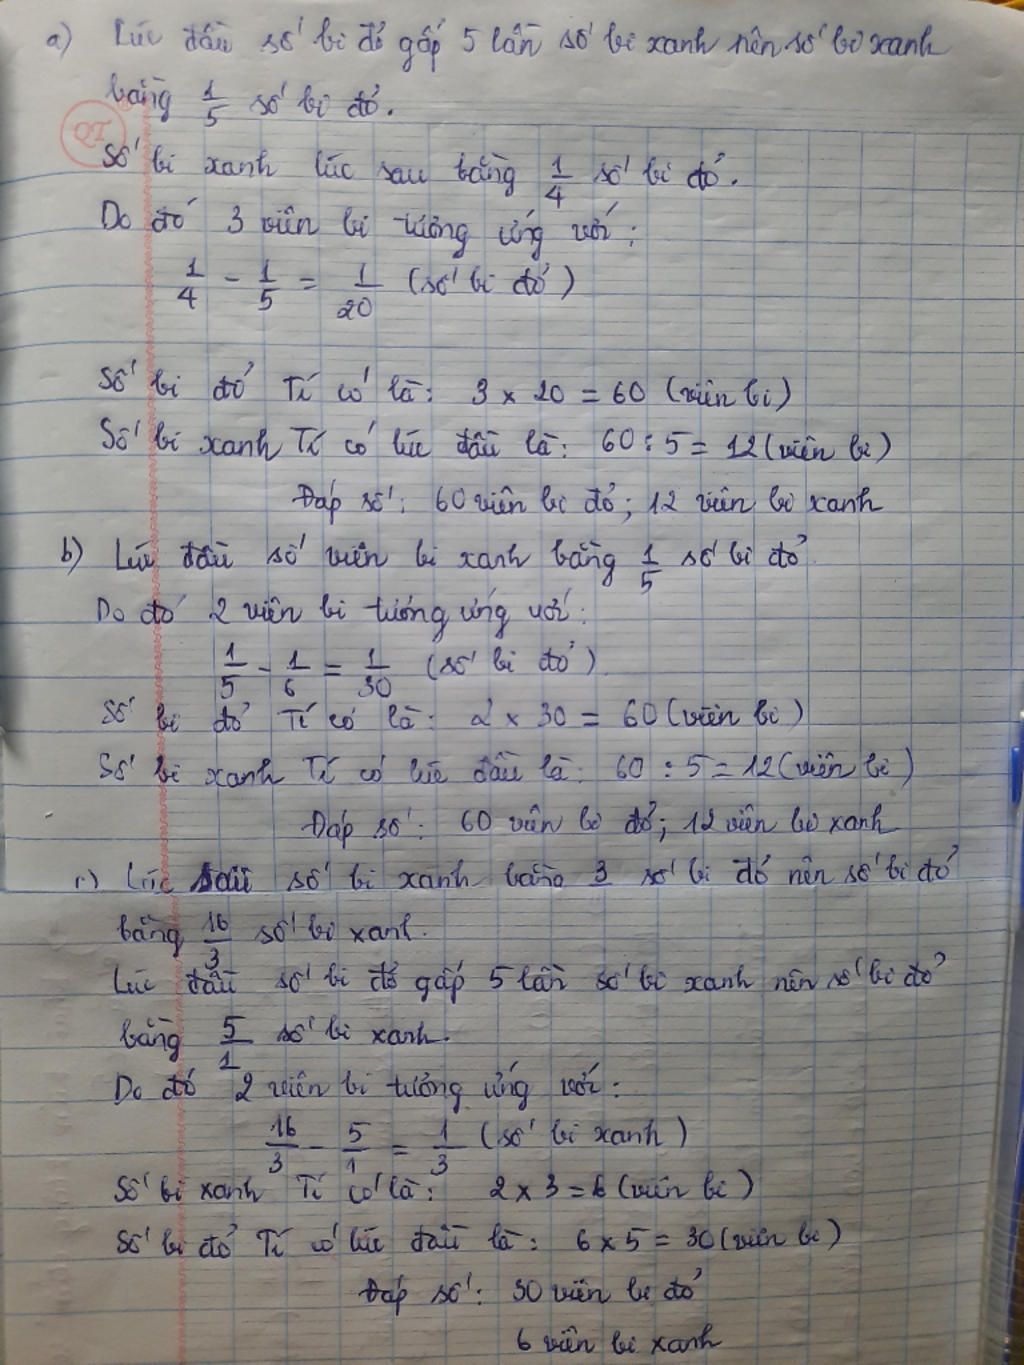 a) Lúc đầu số bi đỏ gấp 5 lần số bi xanh nên số bi xanh
bằng 1/5 số bi đỏ.
QT
Số bi xanh lúc sau bằng 1/4 số bi đỏ.
Do đó 3 viên bi tương ứng với:
1/4 - 1/5 = 1/20 (số bi đỏ)
Số bi đỏ Tí có là: 3 x 20 = 60 (viên bi)
Số bi xanh Tí có lúc đầu là: 60 : 5 = 12 (viên bi)
Đáp số: 60 viên bi đỏ; 12 viên bi xanh
b) Lúc đầu số viên bi xanh bằng 1/5 số bi đỏ
Do đó 2 viên bi tương ứng với:
1/5 - 1/6 = 1/30 (số bi đỏ)
Số bi đỏ Tí có là: 2 x 30 = 60 (viên bi)
Số bi xanh Tí có lúc đầu là: 60 : 5 = 12 (viên bi)
Đáp số: 60 viên bi đỏ; 12 viên bi xanh
c) Lúc sau số bi xanh bằng 3 số bi đỏ nên số bi đỏ
bằng 16/3 số bi xanh.
Lúc đầu số bi đỏ gấp 5 lần số bi xanh nên số bi đỏ
bằng 5/1 số bi xanh.
Do đó 2 viên bi tương ứng với:
16/3 - 5/1 = 1/3 (số bi xanh)
Số bi xanh Tí có là: 2 x 3 = 6 (viên bi)
Số bi đỏ Tí có lúc đầu là: 6 x 5 = 30 (viên bi)
Đáp số: 30 viên bi đỏ
6 viên bi xanh